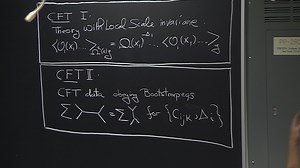 CFT I:
Theory with Local Scale invariance
<O(x₁)...>_{Ω²(x)g} = Ω(x₁)^{-Δ₁}... <O(x₁)...>_g
CFT II
CFT data obeying Bootstrap eqs
Σ = Σ for {C_{ijk}, Δ_i}